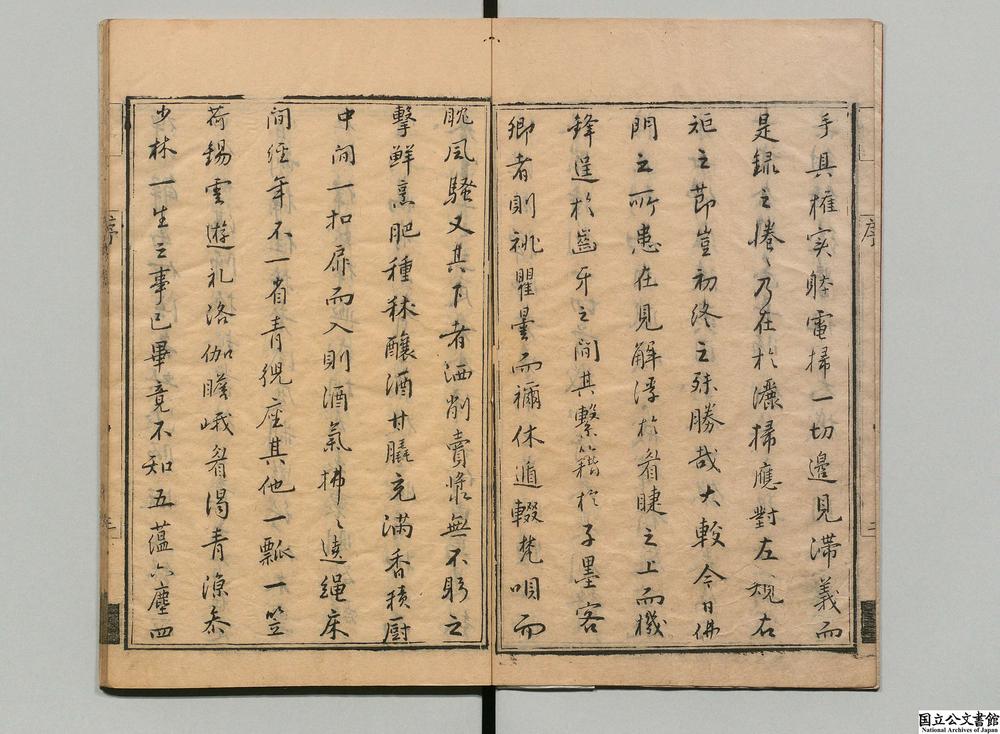 手具權实眸電掃一切邊見滯義而
是録之惓〻乃在於灑掃應對左規右
矩之節豈初終之殊勝哉大較今日佛
門之所患在見解浮於眉睫之上而機
鋒逞於齒牙之間其繫籍於子墨客
卿者則祧瞿曇而禰休遁輟梵唄而
眺風騷又其下者洒削賣漿無不躬之
擊鮮烹肥種秫釀酒甘毳充滿香積厨
中間一扣扉而入則酒氣拂〻遶繩床
间經年不一省青猊座其他一瓢一笠
荷錫雲遊礼洛伽陟峨眉謁青凉參
少林一生之事已畢竟不知五蘊六塵四
序
序
二
三
国立公文書館
National Archives of Japan